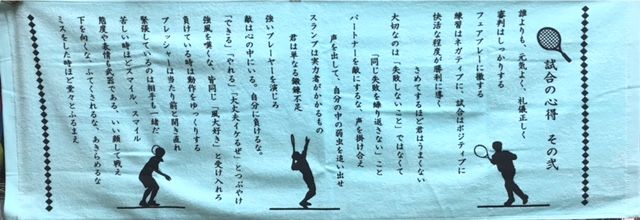 試合の心得　その弐
誰よりも、元気よく、礼儀正しく
審判はしっかりする
フェアプレーに徹する
練習はネガティブに、試合はポジティブに
快活な程度が勝利に導く
さめてするほど君はうまくない
大切なのは「失敗しないこと」ではなくて
「同じ失敗を繰り返さない」こと
パートナーを敵にするな、声を掛け合え
声を出して、自分の中の弱虫を追い出せ
スランプは実力者がかかるもの
君は単なる鍛錬不足
強いプレーヤーを演じろ
敵は心の中にいる。自分に負けるな。
「できる」「やれる」「大丈夫イケるぜ」とつぶやけ
強風を嘆くな、皆同じ「風大好き」と受け入れろ
負けている時は動作をゆっくりする
プレッシャーは当たり前と開き直れ
緊張しているのは相手も一緒だ
苦しい時ほどスマイル　スマイル
態度や表情も武器である。いい顔して戦え
下を向くな、ふてくされるな、あきらめるな
ミスをした時ほど堂々とふるまえ